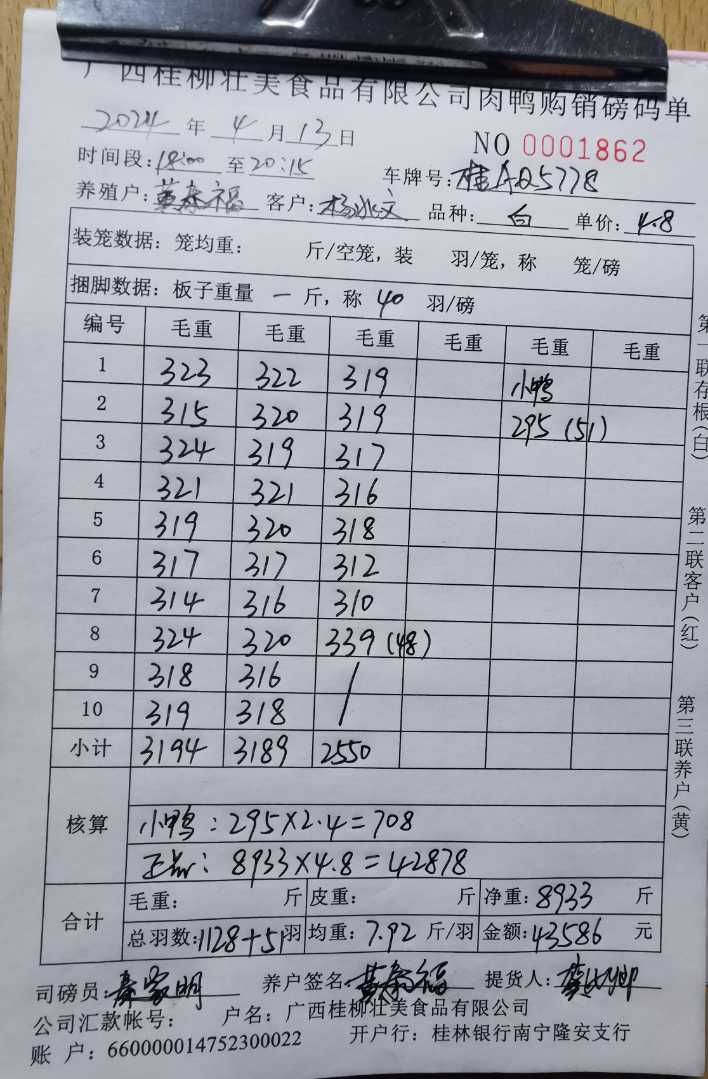 广西桂柳壮美食品有限公司肉鸭购销磅码单
2024 年 4 月 13 日 NO 0001862
时间段: 18:00 至 20:15 车牌号: 桂AQ5778
养殖户: 黄泰福 客户: 杨兆文 品种: 白 单价: 4.8
装笼数据: 笼均重: 斤/空笼, 装 羽/笼, 称 笼/磅
捆脚数据: 板子重量 一 斤, 称 40 羽/磅
编号 毛重 毛重 毛重 毛重 毛重 毛重
1 323 322 319 小鸭
2 315 320 319 295 (51)
3 324 319 317
4 321 321 316
5 319 320 318
6 317 317 312
7 314 316 310
8 324 320 339 (48)
9 318 316 /
10 319 318
小计 3194 3189 2550
核算
小鸭: 295×2.4=708
正品: 8933×4.8=42878
合计
毛重: 斤 皮重: 斤 净重: 8933 斤
总羽数: 1128+51 羽 均重: 7.92 斤/羽 金额: 43586 元
司磅员: 秦家明 养户签名 黄泰福 提货人:
公司汇款帐号: 户名: 广西桂柳壮美食品有限公司
账 户: 660000014752300022 开户行: 桂林银行南宁隆安支行
第一联存根(白)
第二联客户(红)
第三联养户(黄)